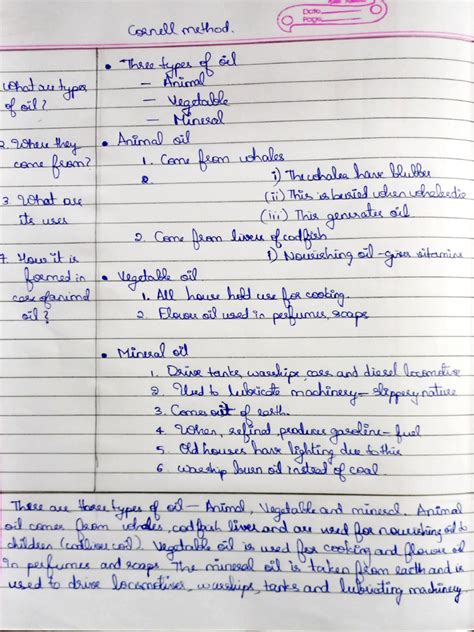 Date
Page
Cornell method.
• Three types of oil
— Animal
— Vegetable
— Mineral
What are types
of oil?
2. Where they
come from?
3. What are
its uses
7. How it is
formed in
case of animal
oil?
• Animal oil
1. Come from whales
2. i) The whales have blubber
(ii) This is buried when whale die
(iii) This generates oil
2. Come from livers of codfish
1) Nourishing oil - gives vitamins
• Vegetable oil
1. All house hold use for cooking.
2. Flower oil used in perfumes, soaps
• Mineral oil
1. Drive tanks, warships, cars and diesel locomotive
2. Used to lubricate machinery - slippery nature
3. Comes out of earth.
4. When, refind, produce gasoline - fuel
5. Old houses have lighting due to this
6. warship burn oil instead of coal.
There are three types of oil - Animal, Vegetable and mineral. Animal
oil comes from whales, codfish liver and are used for nourishing oil to
children (codliver oil). Vegetable oil is used for cooking and flower oil
in perfumes and soaps. The mineral oil is taken from earth and is
used to drive locomotives, warships, tanks and lubricating machinery.